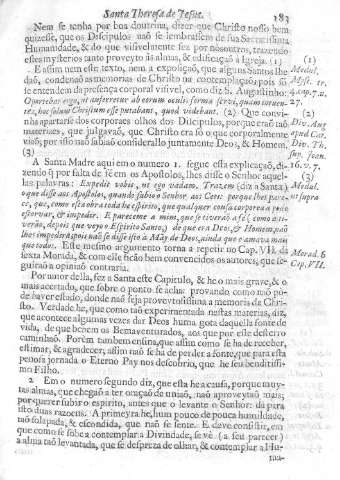 Santa Theresa de Jesus. 183
Nem se tenha por boa doutrina, dizer que Christo nosso bem
quizesse, que os Discipulos naõ se lembrassem de sua Sacratissima
Humanidade, & do que visivelmente fez por nósoutros, trazendo
esses mysterios tanto proveyto às almas, & edificaçaõ à Igreja. (1)
E assim nem este texto, nem a expoliçaõ, que alguns Santos lhe
daõ, condenaõ as memorias de Christo na contemplaçaõ; pois só
se entendem da presença corporal visivel, como diz S. Augustinho:
Oportebat ergo, ut auferretur ab eorum oculis forma servi, quam
tes, hoc solum Christum esse putabant, quod videbant. (2) Que convi-
nha apartarse dos corporaes olhos dos Discipulos, porque eraõ taõ
materiaes, que julgavaõ, que Christo era só o que corporalmente
viaõ, por isso naõ sabiaõ considerallo juntamente Deos, & Homem.
(3)
A Santa Madre aqui em o numero 1. segue esta explicaçaõ, di-
zendo q̃ por falta de fé em os Apostolos, lhes disse o Senhor aquel-
las palavras: Expedit vobis, ut ego vadam. Trazem (diz a Santa)
o que disse aos Apostolos, quando subio o Senhor aos Ceos: porque lhes pare-
ce, que, como esta obra toda he espirito, que qualquer cousa corporea a póde
estorvar, & impedir. E pareceme a mim, que se tiveraõ a fé (como a ti-
veraõ, depois que veyo o Espirito Santo) de que era Deos, & Homem, naõ
lhos impedira; pois naõ se disse isto à Mãy de Deos, ainda que o amava mais
que todos. Este mesmo argumento torna a repetir no Cap. VII. da
sexta Morada, & com elle ficaõ bem convencidos os autores, que se-
guiraõ a opiniaõ contraria.
Por autor della, fez a Santa este Capitulo, & he o mais grave, & o
mais acertado, que sobre o ponto se acha: provando como naõ pó-
de haver estado, donde naõ seja proveytosissima a memoria de Chri-
sto. Verdade he, que como taõ experimentada nestas materias, diz,
que acontece algumas vezes dar Deos huma gota daquella fonte de
vida, de que bebem os Bemaventurados, aos que por este desterro
caminhaõ. Porém tambem ensina, que assim como se ha de receber,
estimar, & agradecer, assim naõ se ha de perder a fonte, que para esta
penosa jornada o Eterno Pay nos descobrio, que he seu benditissi-
mo Filho.
2 Em o numero segundo diz, que esta he a causa, porque muy-
tas almas, que chegaõ a ter oraçaõ de uniaõ, naõ aproveytaõ mais;
por querer subir o espirito, antes que o levante o Senhor: dá para
isto duas razoens. A primeyra he, hum pouco de pouca humildade,
taõ solapada, & escondida, que naõ se sente. E deve consistir, em
que como se sobe a contemplar a Divindade, se vé (a seu parecer)
a alma taõ levantada, que se despreza de olhar, & contemplar a Hu-
ma-
(1)
4. ap. 7. n.
27.
(2)
Div. Aug
Div. Th.
16. v. 7.
(3)
ut supra
Morad. 6
Cap. VII.